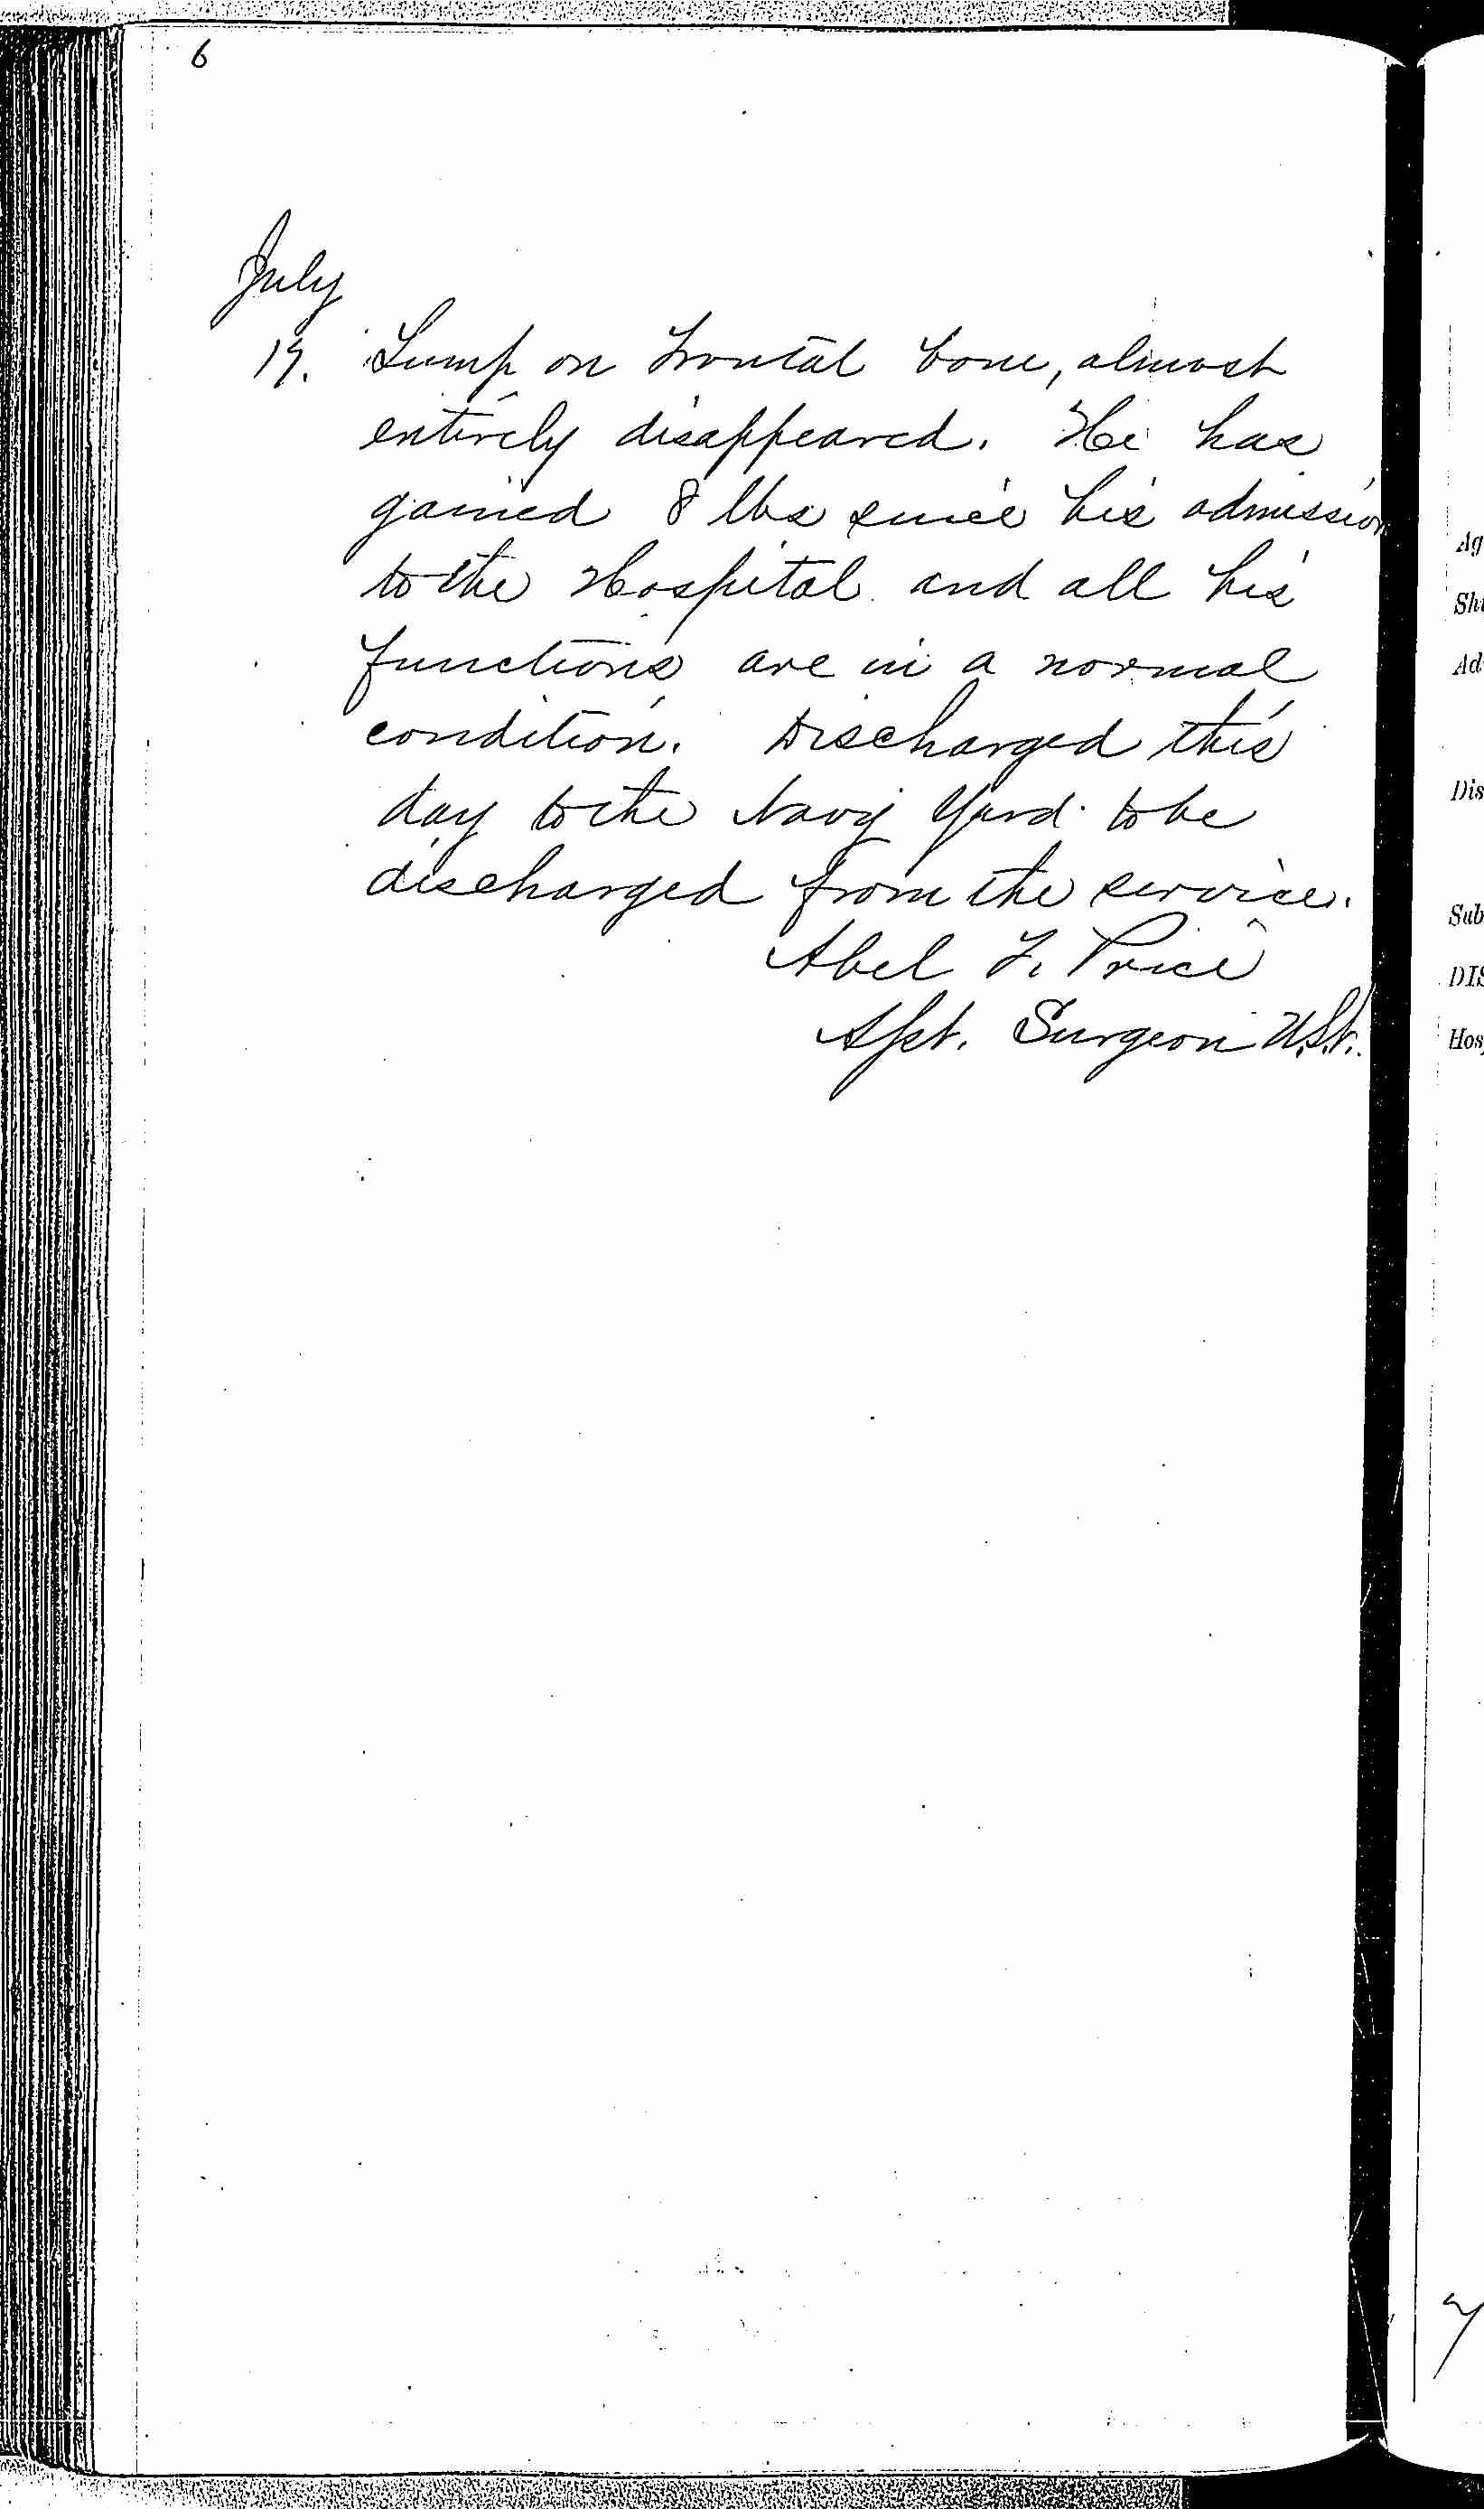 6
July
19. Lump on frontal bone, almost
entirely disappeared. He has
gained 8 lbs since his admission
to the Hospital and all his
functions are in a normal
condition. Discharged this
day to the Navy Yard to be
discharged from the service.
Abel F. Price
Asst. Surgeon U.S.N.
Ag
Shi
Ad
Dis
Sub
DIS
Hos